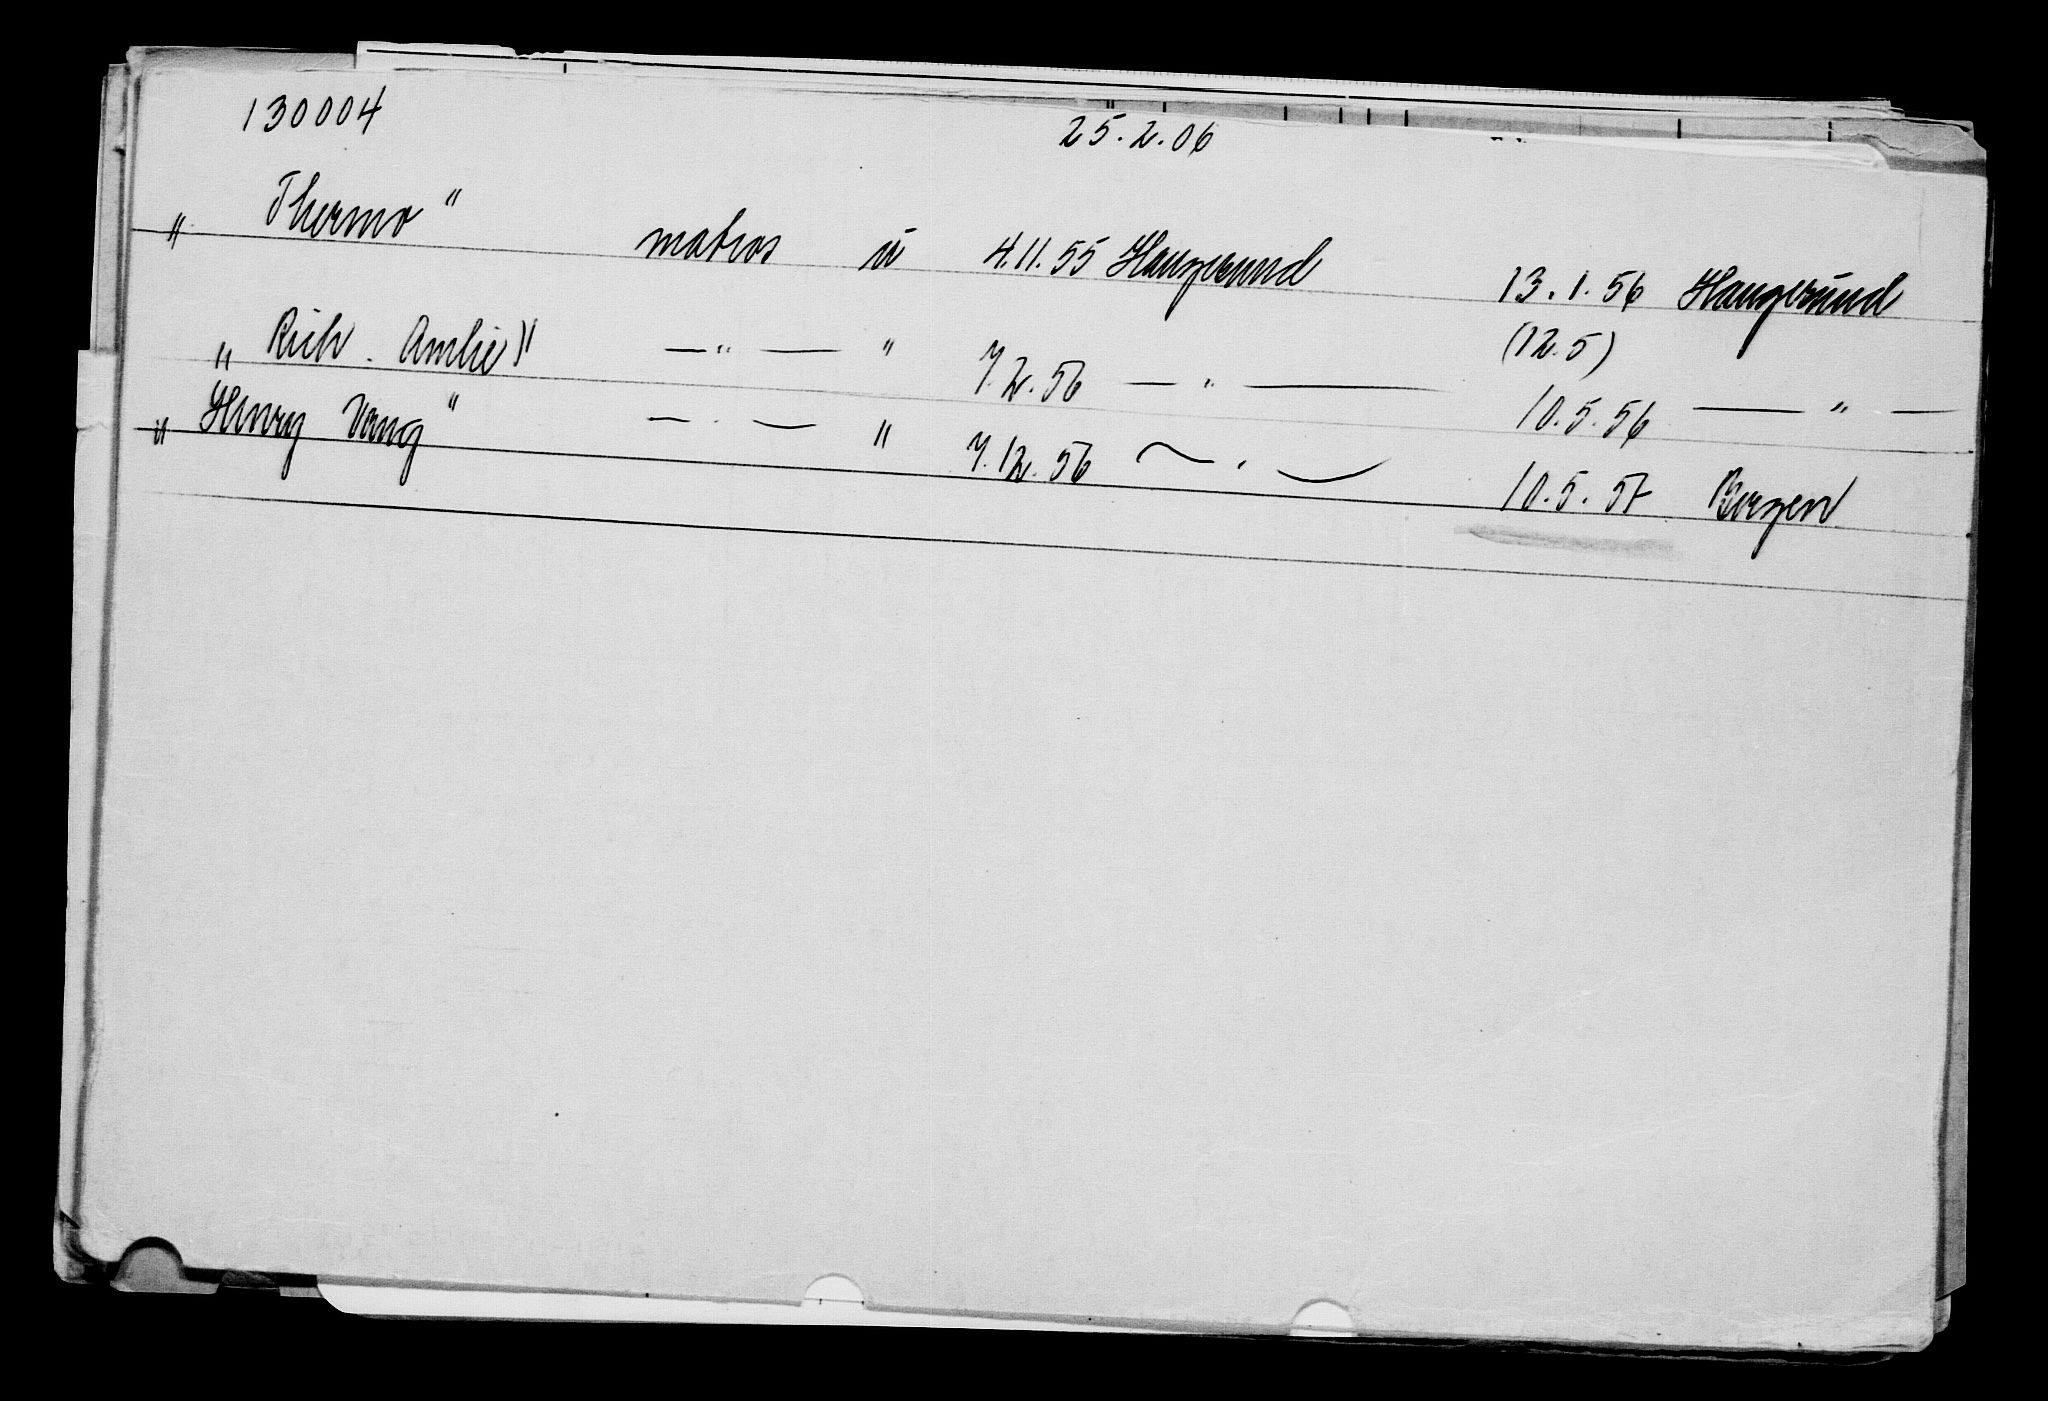 130004 25.2.06
„ Thermo" matros u 4.11.55 Haugesund 13.1.56 Haugesund
(12.5)
„ Rich. Amlie" — " — " 7.2.56 — " — 10.5.56 — " —
„ Henry Vang" — . — " 7.12.56 — . — 10.5.57 Bergen